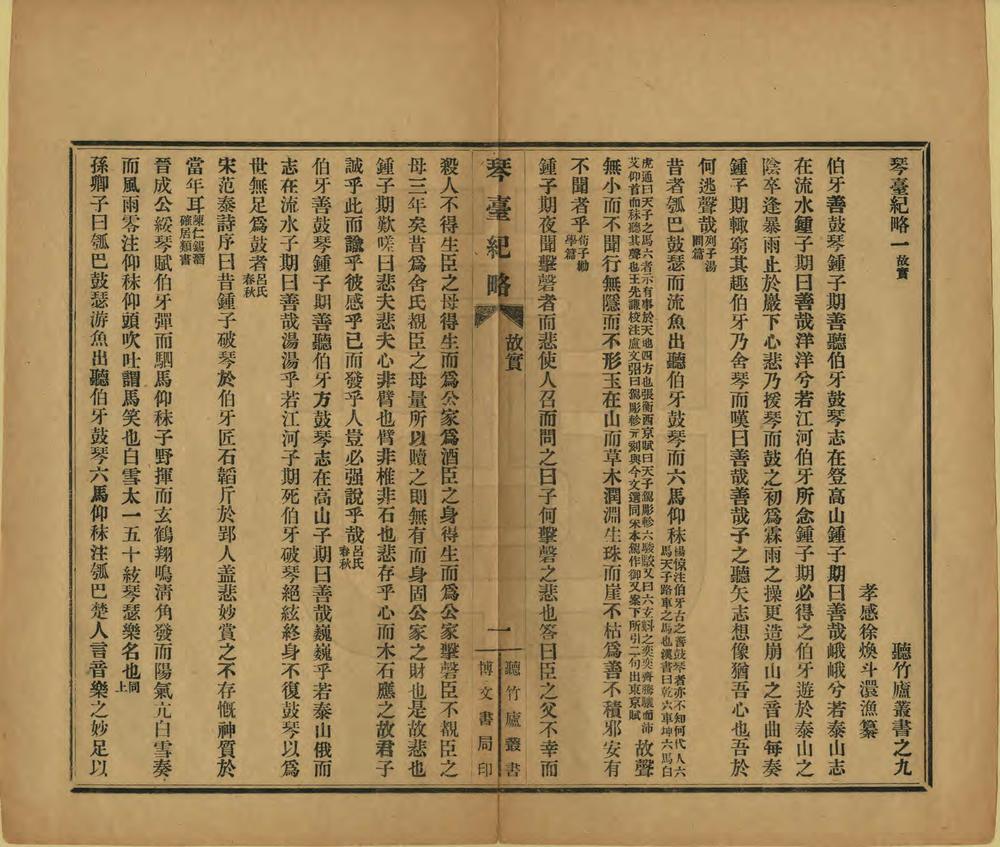 琴臺紀略一 故實
聽竹廬叢書之九
孝感徐煥斗瀠漁纂
伯牙善鼓琴鍾子期善聽伯牙鼓琴志在登高山鍾子期曰善哉峨峨兮若泰山志
在流水鍾子期曰善哉洋洋兮若江河伯牙所念鍾子期必得之伯牙遊於泰山之
陰卒逢暴雨止於巖下心悲乃援琴而鼓之初為霖雨之操更造崩山之音曲每奏
鍾子期輒窮其趣伯牙乃舍琴而嘆曰善哉善哉子之聽矢志想像猶吾心也吾於
何逃聲哉列子湯問篇
昔者瓠巴鼓瑟而流魚出聽伯牙鼓琴而六馬仰秣楊倞注伯牙古之善鼓琴者亦不知何代人六馬天子路車之馬也漢書曰乾六車坤六馬白
虎通曰天子之馬六者示有事於天地四方也張衡西京賦曰天子駕彫軫六駿駮又曰六玄虯之奕奕齊騰驤而沛艾仰首而秣聽其聲也王先謙校注盧文弨曰駕彫軫元刻與今文選同宋本駕作御又案下所引二句出東京賦故聲
無小而不聞行無隱而不形玉在山而草木潤淵生珠而崖不枯為善不積邪安有
不聞者乎荀子勸學篇
鍾子期夜聞擊磬者而悲使人召而問之曰子何擊磬之悲也答曰臣之父不幸而
琴臺紀略 故實 一 聽竹廬叢書 博文書局印
殺人不得生臣之母得生而為公家為酒臣之身得生而為公家擊磬臣不覩臣之
母三年矣昔為舍氏覩臣之母量所以贖之則無有而身固公家之財也是故悲也
鍾子期歎嗟曰悲夫悲夫心非臂也臂非椎非石也悲存乎心而木石應之故君子
誠乎此而諭乎彼感乎已而發乎人豈必强說乎哉呂氏春秋
伯牙善鼓琴鍾子期善聽伯牙方鼓琴志在高山子期曰善哉巍巍乎若泰山俄而
志在流水子期曰善哉湯湯乎若江河子期死伯牙破琴絕絃終身不復鼓琴以為
世無足為鼓者呂氏春秋
宋范泰詩序曰昔鍾子破琴於伯牙匠石韜斤於郢人盖悲妙賞之不存慨神質於
當年耳陳仁錫潛確居類書
晉成公綏琴賦伯牙彈而駟馬仰秣子野揮而玄鶴翔鳴淸角發而陽氣亢白雪奏
而風雨零注仰秣仰頭吹吐謂馬笑也白雪太一五十絃琴瑟樂名也同上
孫卿子曰瓠巴鼓瑟游魚出聽伯牙鼓琴六馬仰秣注瓠巴楚人言音樂之妙足以